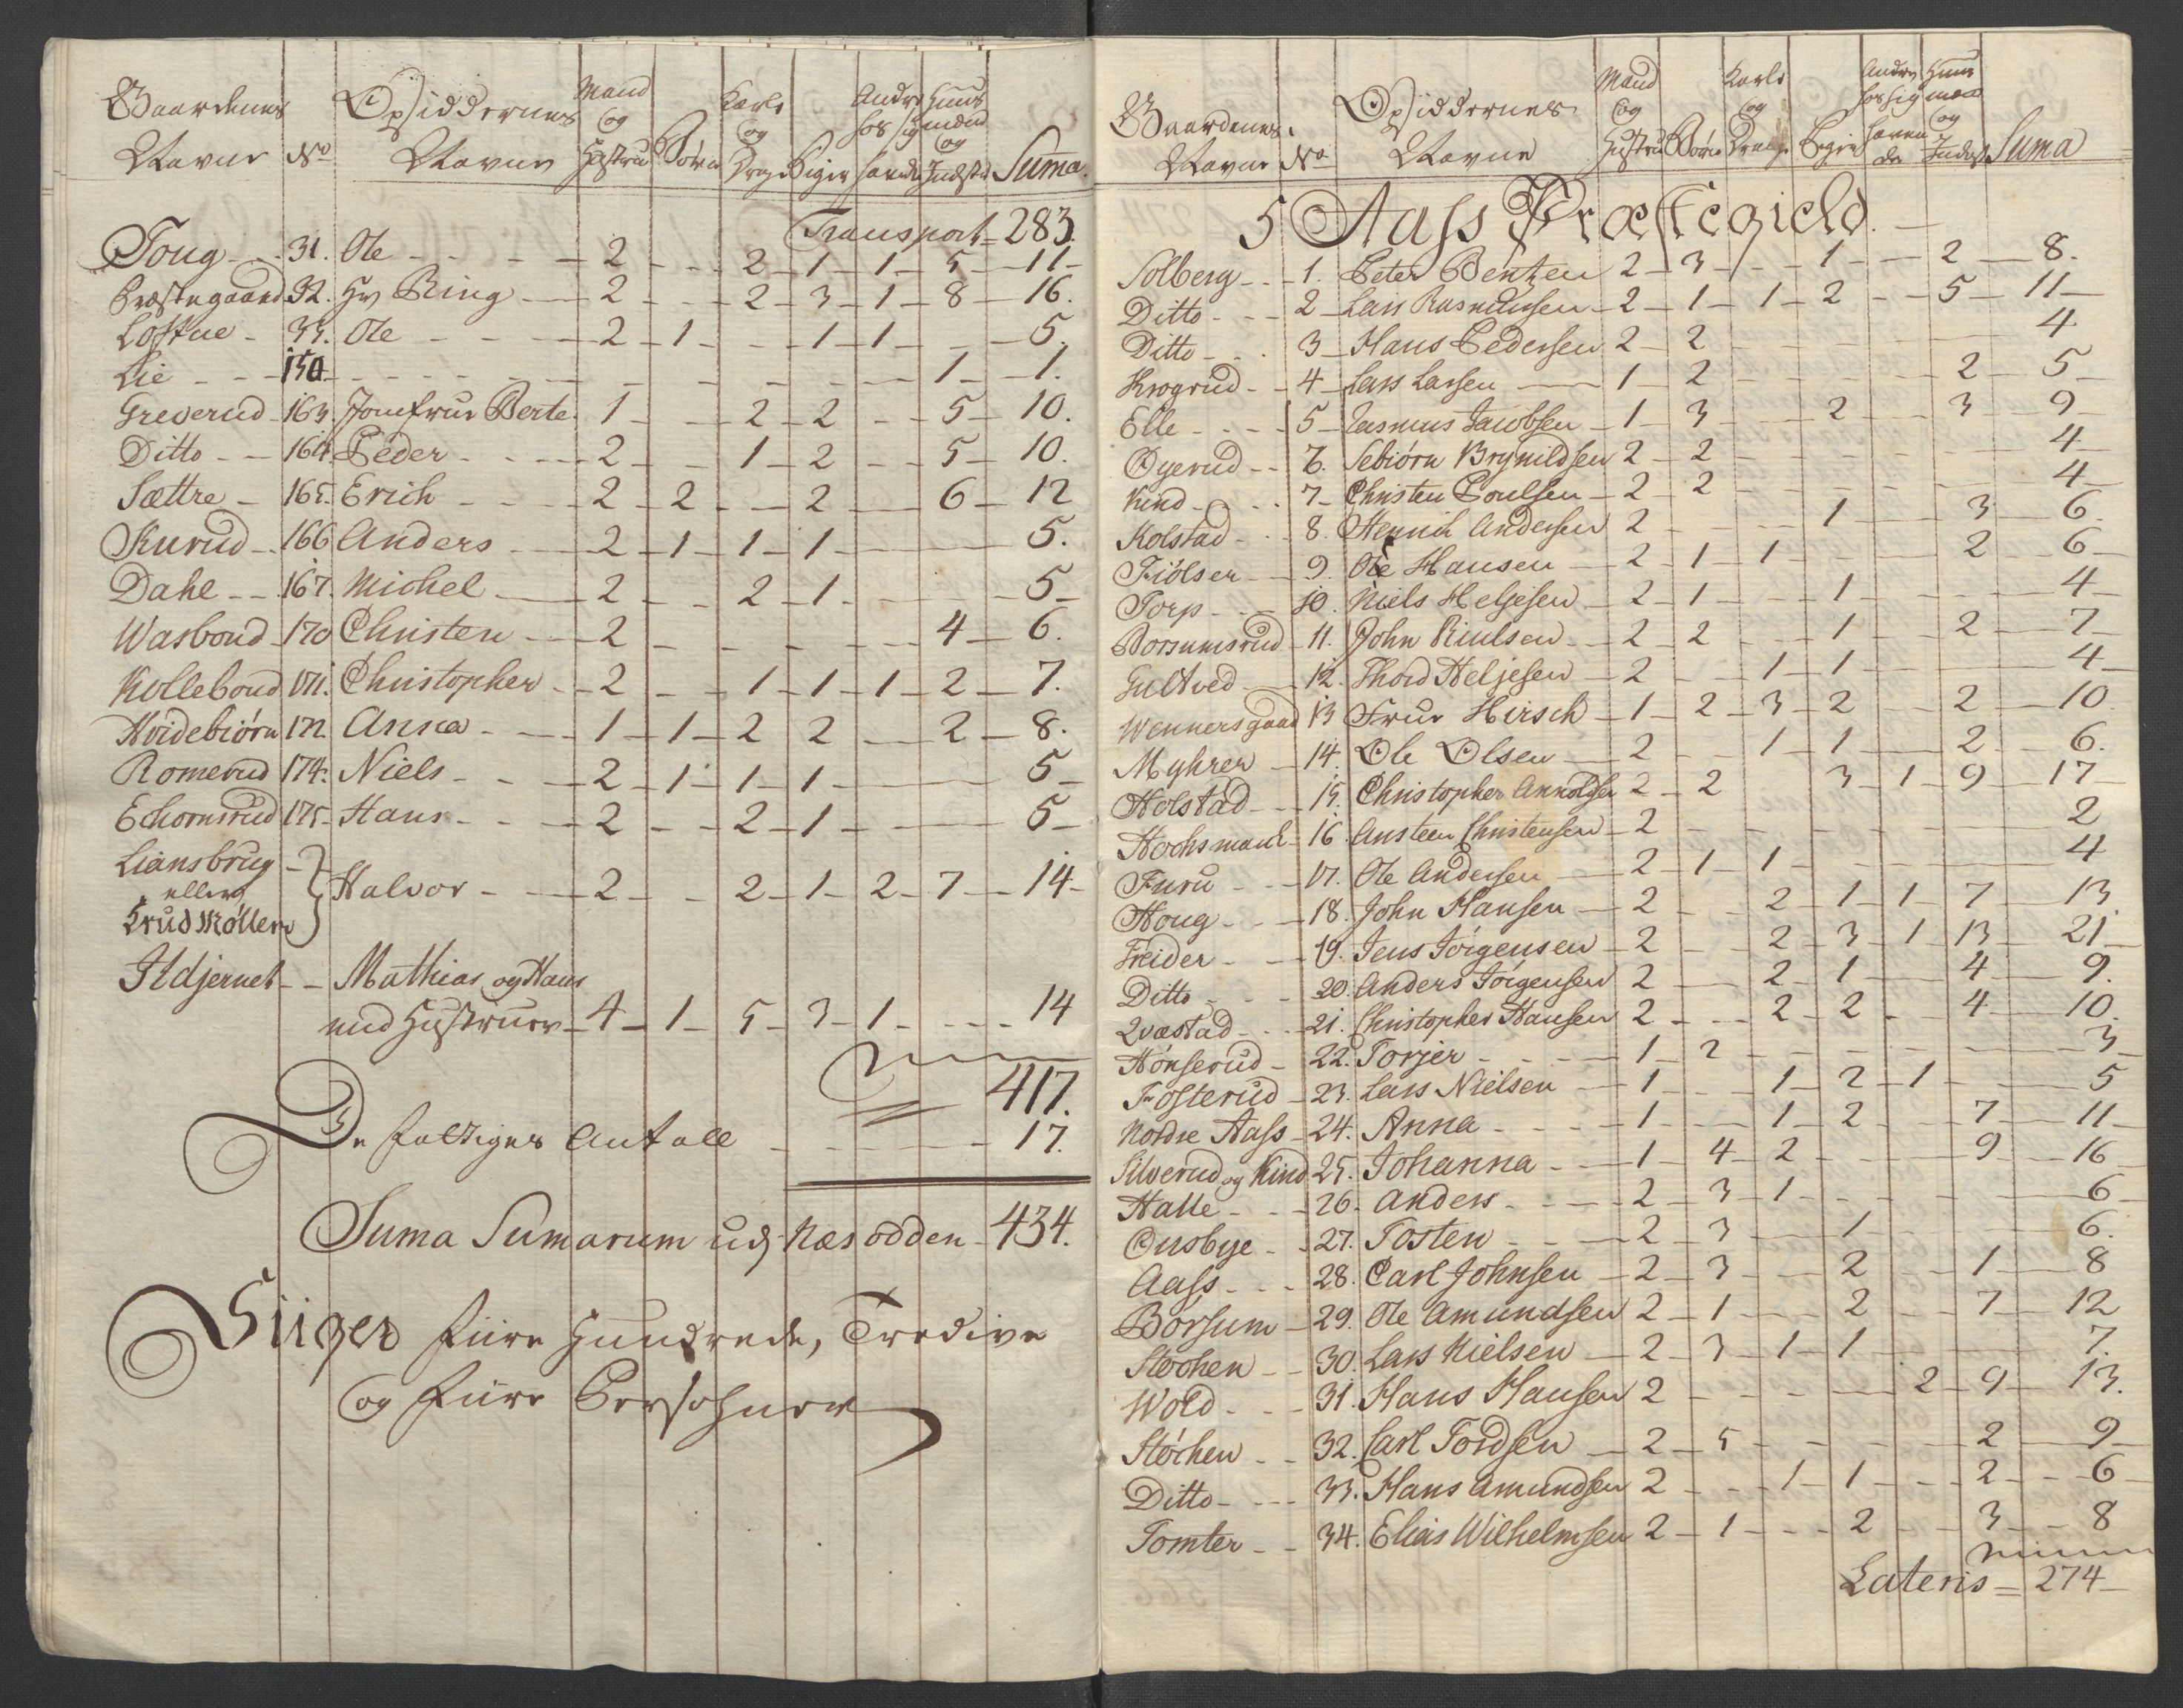 Gaardenes Navne | No | Opsiddernes Navne | Mand og Hustru | Børn | Karle og Drenge | Piger | Andre hos sig havende | Huusmænd og Inderster | Suma.
Transport = 283.
Toug 31. Ole 2 2 1 1 5 11
Præstegaard 32. Hr Ring 2 2 3 1 8 16.
Loftue 33. Ole 2 1 1 1 5.
Lie 150 1 1.
Greverud 163 Jomfrue Berte 1 2 2 5 10.
Ditto 164. Peder 2 1 2 5 10.
Sættre 165. Erich 2 2 2 6 12
Kurud 166 Anders 2 1 1 1 5.
Dahl 167. Michel 2 2 1 5
Wasbond 170 Christen 2 4 6.
Kollebond 171. Christopher 2 1 1 1 2 7.
Hvidebiørn 172. Anna 1 1 2 2 2 8.
Romerud 174. Niels 2 1 1 1 5
Echornsrud 175 Hans 2 2 1 5
Liansbrug
eller
Trud Møllen } Halvor 2 2 1 2 7 14
Ildjernet Mathias og Hans
med Hustruer 4 1 5 3 1 14
417.
De fattiges Antall 17.
Suma Sumarum udj Næsodden 434.
Siiger fiire hundrede, Tredive
og fiire Persohner
Gaardenes Navne | No | Opsiddernes Navne | Mand og Hustru | Børn | Karle og Drenge | Piger | Andre hos sig havende | Huusmænd og Inderst | Suma
5 Aass Præstegield.
Solberg 1. Peter Bentzen 2 3 1 2 8.
Ditto 2 Lars Rasmussen 2 1 1 2 5 11
Ditto 3 Hans Pedersen 2 2 4
Krogrud 4 Lars Larsen 1 2 2 5
Elle 5 Rasmus Jacobsen 1 3 2 3 9
Øyerud 6. Sebiørn Brynildsen 2 2 4
Kind 7 Christen Poulsen 2 2 4
Kolstad 8. Henrich Andersen 2 1 3 6.
Fiölser 9. Ole Hansen 2 1 1 2 6
Torp 10. Niels Helgesen 2 1 1 4
Borsumsrud 11. John Paulsen 2 2 1 2 7
Gultved 12. Thord Heljesen 2 1 1 4
Wennersgaard 13 Frue Hirsch 1 2 3 2 2 10
Myhrer 14. Ole Olsen 2 1 1 2 6.
Holstad 15. Christopher Arnoldsen 2 2 3 1 9 17
Hochsmark 16. Austeen Christensen 2 2
Furu 17. Ole Andersen 2 1 1 4
Houg 18. John Hansen 2 2 1 1 7 13
Freider 19. Jens Jörgensen 2 2 3 1 13 21
Ditto 20. Anders Jörgensen 2 2 1 4 9.
Qvæstad 21. Christopher Hansen 2 2 2 4 10.
Hönserud 22. Torjer 1 2 3
Fosterud 23. Lars Nielsen 1 1 2 1 5
Nordre Aass 24. Anna 1 1 2 7 11
Silverud og Kind 25. Johanna 1 4 2 9 16
Halle 26. Anders 2 3 1 6
Ousbye 27. Tosten 2 3 1 6.
Aass 28. Carl Johnsen 2 3 2 1 8
Borsum 29. Ole Amundsen 2 1 2 7 12
Støchen 30. Lars Nielsen 2 3 1 1 7.
Wold 31. Hans Hansen 2 2 9 13.
Støchen 32. Carl Tordsen 2 5 2 9
Ditto 33. Hans Amundsen 2 1 1 2 6
Tomter 34. Elias Wilhelmsen 2 1 2 3 8
Lateris = 274